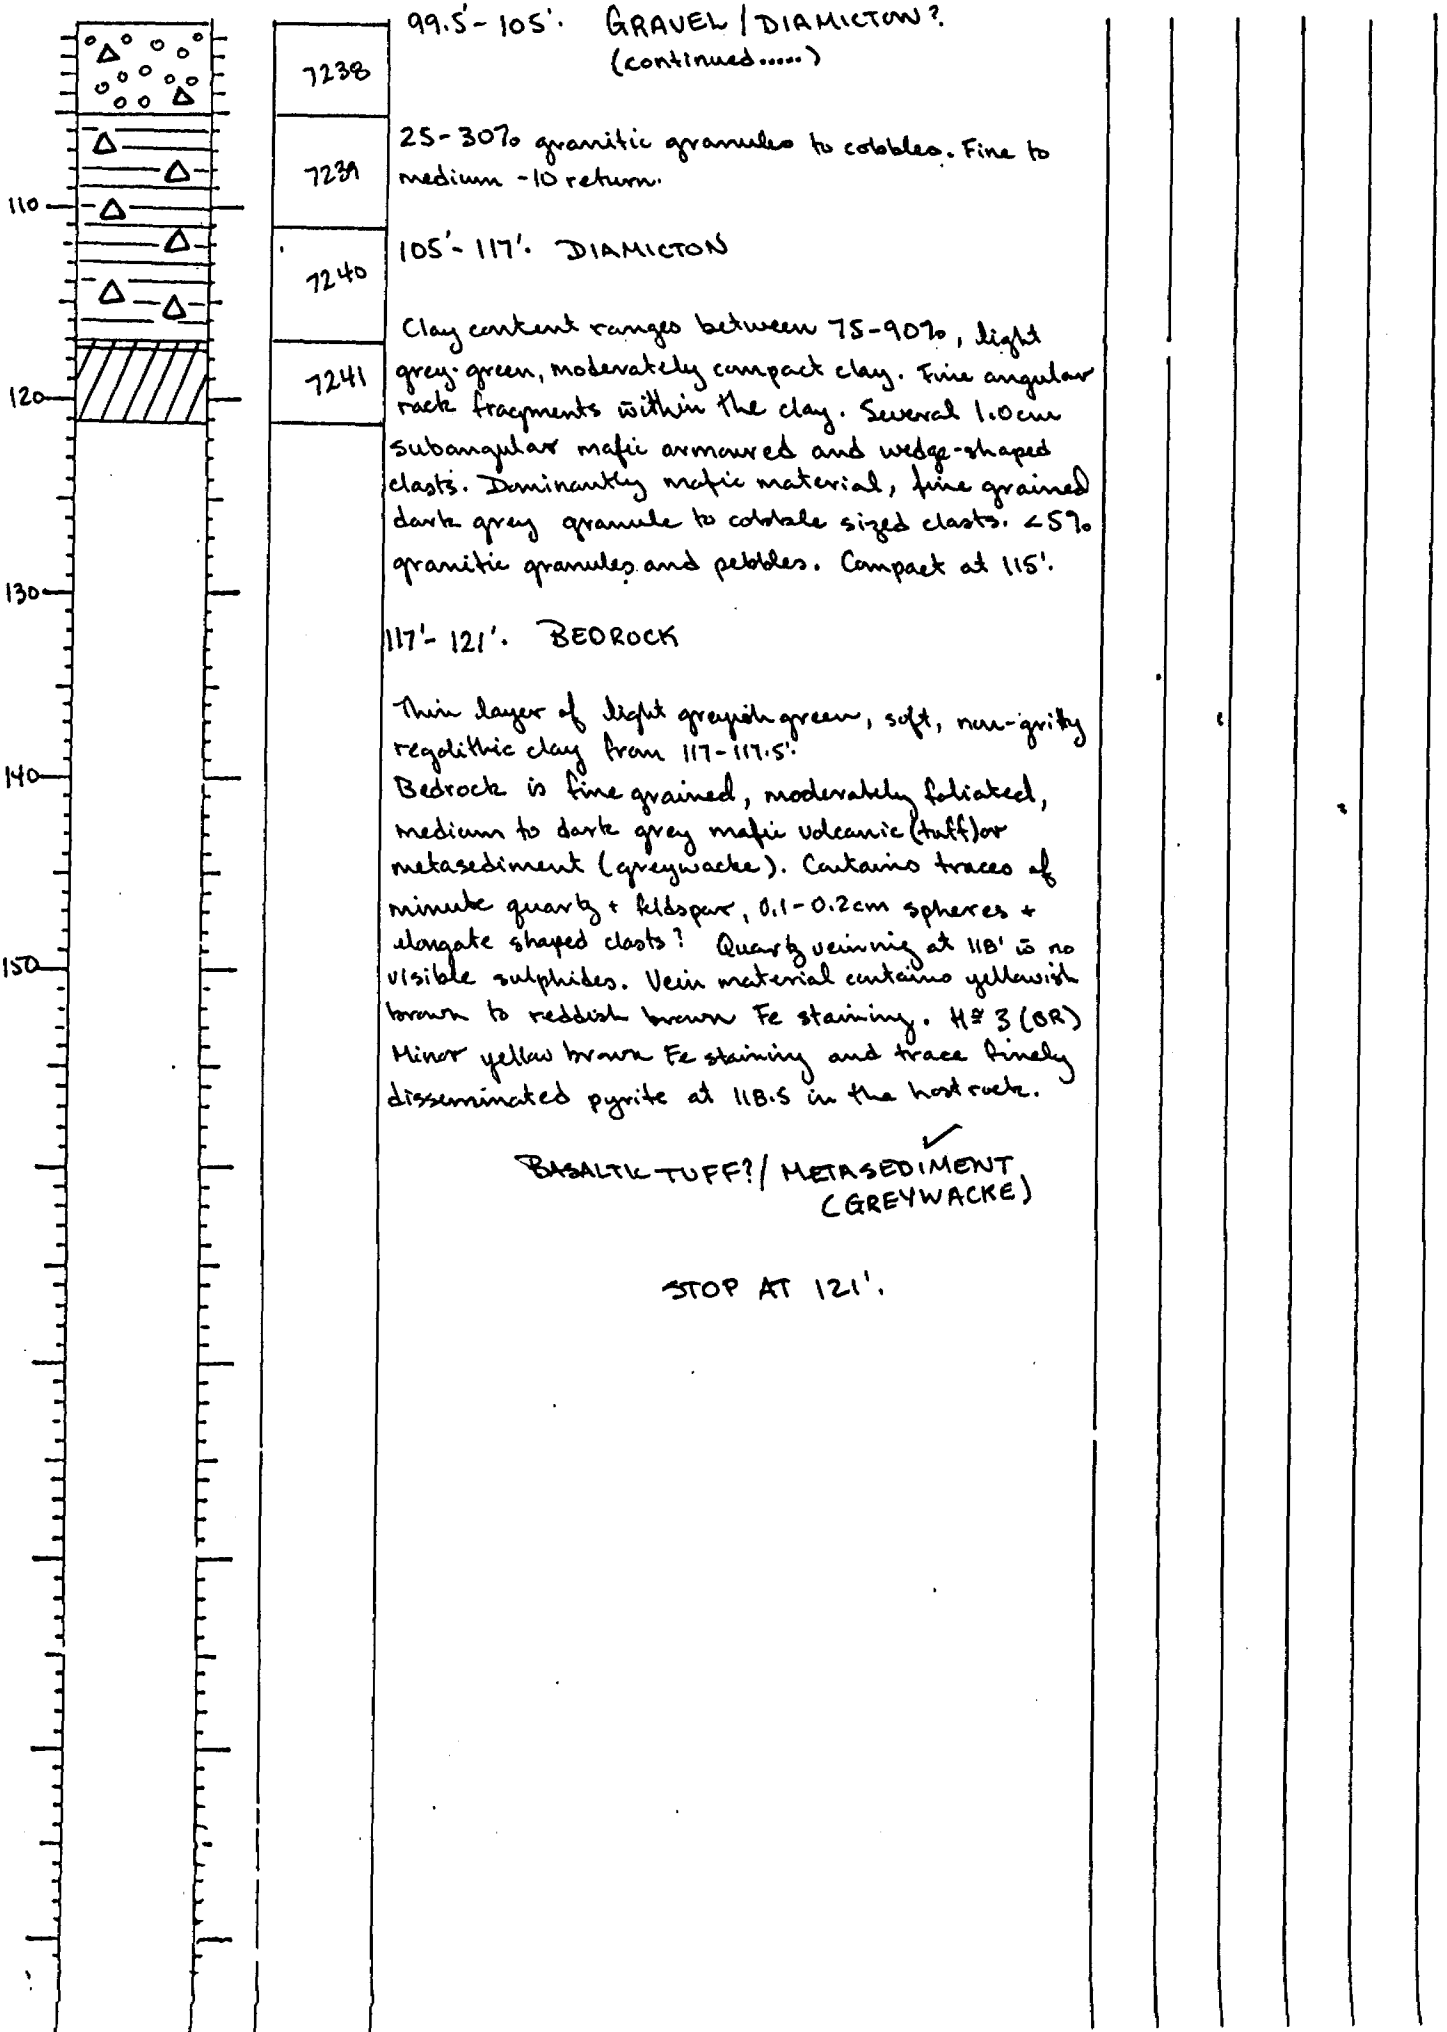 99.5'-105'. GRAVEL / DIAMICTON?
(continued.....)
7238
25-30% granitic granules to cobbles. Fine to
medium -10 return.
7239
110
105'-117'. DIAMICTON
7240
Clay content ranges between 75-90%, light
grey-green, moderately compact clay. Fine angular
7241
120
rock fragments within the clay. Several 1.0cm
subangular mafic armoured and wedge-shaped
clasts. Dominantly mafic material, fine grained
dark grey granule to cobble sized clasts. <5%
granitic granules and pebbles. Compact at 115'.
130
117'-121'. BEDROCK
Thin layer of light greyish green, soft, non-gritty
regolithic clay from 117-117.5'.
140
Bedrock is fine grained, moderately foliated,
medium to dark grey mafic volcanic (tuff) or
metasediment (greywacke). Contains traces of
minute quartz + feldspar, 0.1-0.2cm spheres +
elongate shaped clasts? Quartz veining at 118' w̄ no
150
visible sulphides. Vein material contains yellowish
brown to reddish brown Fe staining. H≅3 (BR)
Minor yellow brown Fe staining and trace finely
disseminated pyrite at 118.5 in the host rock.
BASALTIC TUFF? / METASEDIMENT
(GREYWACKE)
STOP AT 121'.